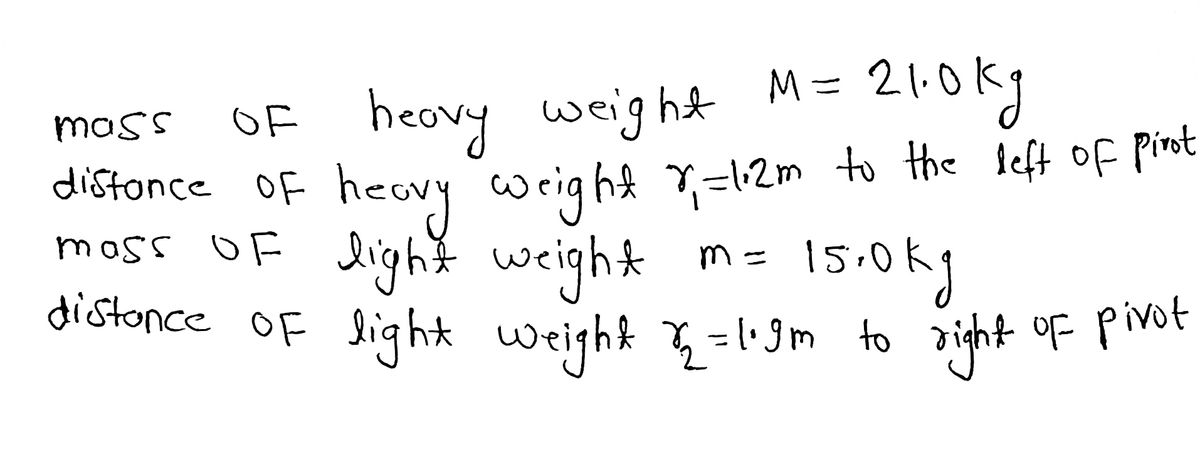 mass OF heavy weight M = 21.0 kg
distance OF heavy weight r₁=1.2m to the left OF pivot
mass OF light weight m = 15.0 kg
distance OF light weight r₂ = 1.9m to right OF pivot